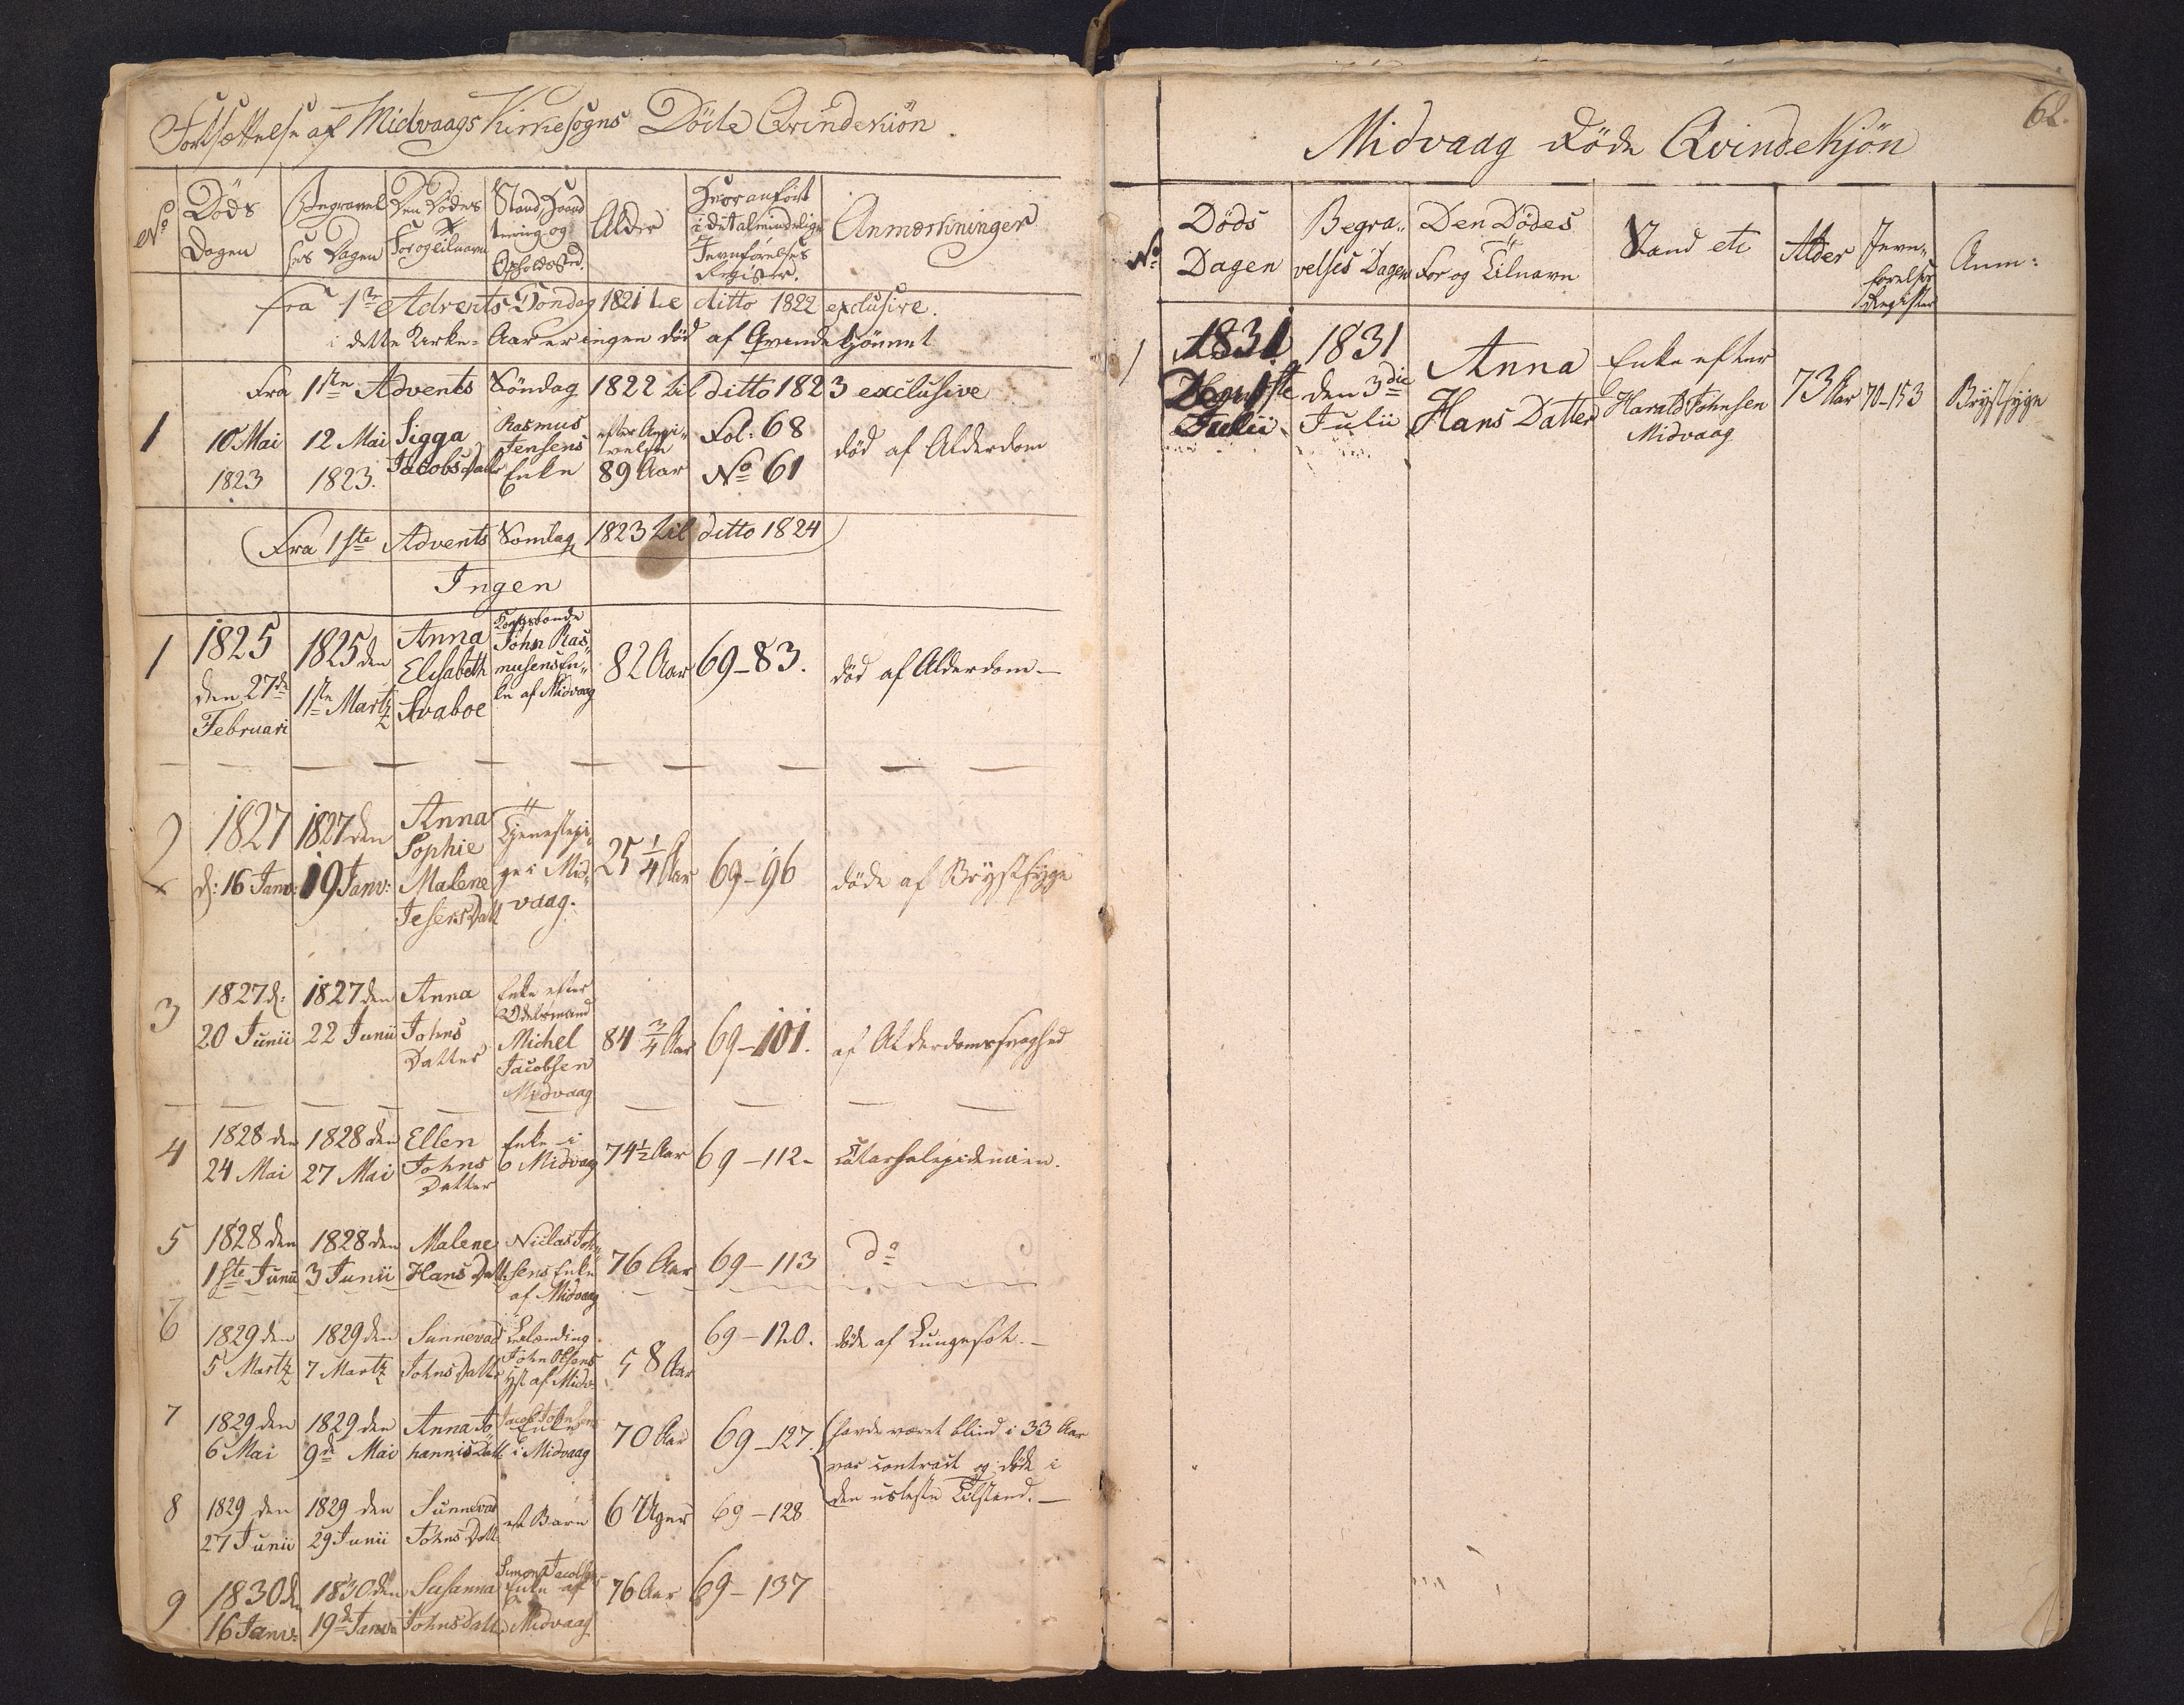 Fortsættelse af Midvaags Kirkesogns Döde Qvindekiön.
No
Döds Dagen
Begravelses Dagen
Den Dödes For og Tilnavn
Stand, Haandtering og Opholdssted.
Alder
Hvor anført i det almindelige Jevnførelses Register.
Anmærkninger
fra 1te Advents Söndag 1821 til ditto 1822 exclusive.
i dette Kirke-Aar er ingen död af Qvindekjönnet
Fra 1ste Advents Söndag 1822 til ditto 1823 exclusive
1
10 Mai 1823
12 Mai 1823.
Sigga Jacobs Datter
Rasmus Jensens Enke
efter Angivelse 89 Aar
Fol: 68 No 61
död af Alderdom
(Fra 1ste Advents Söndag 1823 til ditto 1824)
Ingen
1
1825 den 27de Februari
1825 den 1ste Martz
Anna Elisabeth Svaboe
Kongsbonde John Rasmusens Enke af Midvaag
82 Aar
69-83.
död af Alderdom-
2
1827 d: 16 Janv:
1827 den 19 Janv:
Anna Sophie Malene Jesens Datt
Tjenestepige i Midvaag.
25 1/4 Aar
69-96
döde af Brystsyge
3
1827 d: 20 Junii
1827 den 22 Junii
Anna Johns Datter
Enke efter Odelsmand Michel Jacobsen Midvaag
84 3/4 Aar
69-101.
af Alderdomssvaghed
4
1828 den 24 Mai
1828 den 27 Mai
Ellen Johns Datter
Enke i Midvag
74 1/2 Aar
69-112-
Catarhalepidemien.
5
1828 den 1ste Junii
1828 den 3 Junii
Malene Hans Datt
Niclas Johnsens Enke af Midvaag
76 Aar
69-113
do
6
1829 den 5 Martz
1829 den 7 Martz
Sunneva Johns Datter
John Olsens af Midv
58 Aar
69-120.
döde af Lungesot.-
7
1829 den 6 Mai
1829 den 9de Mai
Anna Johannis Datt
Jacob Johnsens Enke i Midvaag
70 Aar
69-127.
havde været blind i 33 Aar
var contract og döde i
den usleste Tilstand.-
8
1829 den 27 Junii
1829 den 29 Junii
Sunneva Johns Datt
et Barn
6 Uger
69-128
9
1830 den 16 Janv:
1830 den 19de Janv
Susanna Johnsdatt
Simon Jacobsens Enke af Midvaag
76 Aar
69-137
62.
Midvaag Døde Qvindekjøn
No
Døds Dagen
Begravelses Dagen
Den Dødes For og Tilnavn
Stand etc
Alder
Jevnførelses Register
Anm:
1
1831 Den 1ste Julii
1831 den 3die Julii
Anna Hans Datter
Enke efter Harald Johnsen Midvaag
73 Aar
70-153
Brystsyge